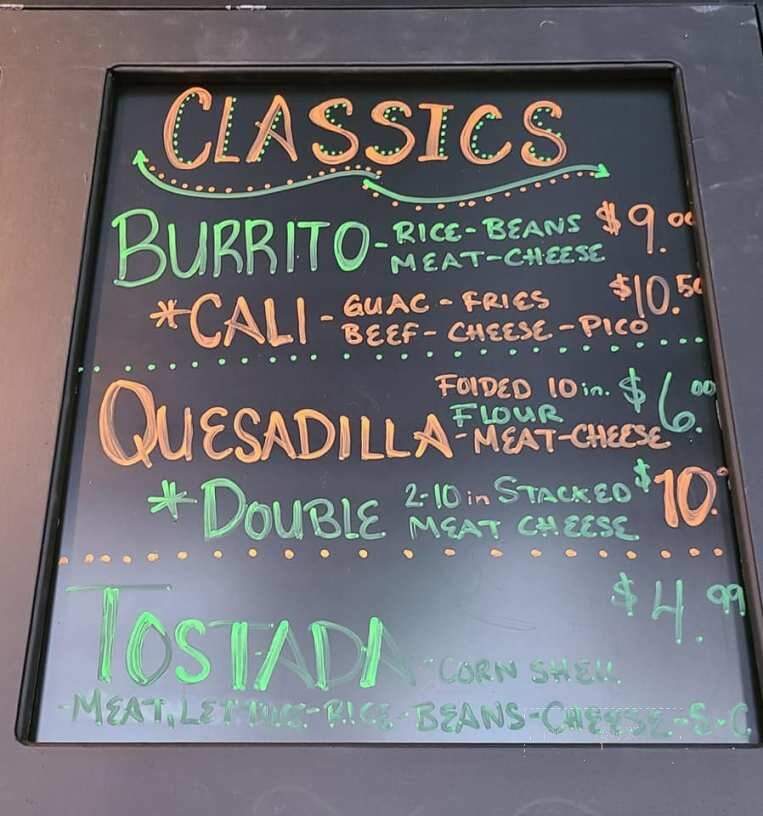 CLASSICS
BURRITO - RICE - BEANS $9.00
MEAT - CHEESE
*CALI - GUAC - FRIES $10.50
BEEF - CHEESE - PICO
FOLDED 10 in. $6.00
FLOUR
QUESADILLA - MEAT - CHEESE
*DOUBLE 2-10 in STACKED $10.
MEAT CHEESE
$4.99
TOSTADA - CORN SHELL
- MEAT, LETTUCE - RICE - BEANS - CHEESE - S - C